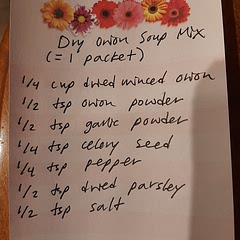 Dry Onion Soup Mix
(= 1 packet)
1/4 cup dried minced onion
1/2 tsp onion powder
1/2 tsp garlic powder
1/4 tsp celery seed
1/4 tsp pepper
1/2 tsp dried parsley
1/2 tsp salt